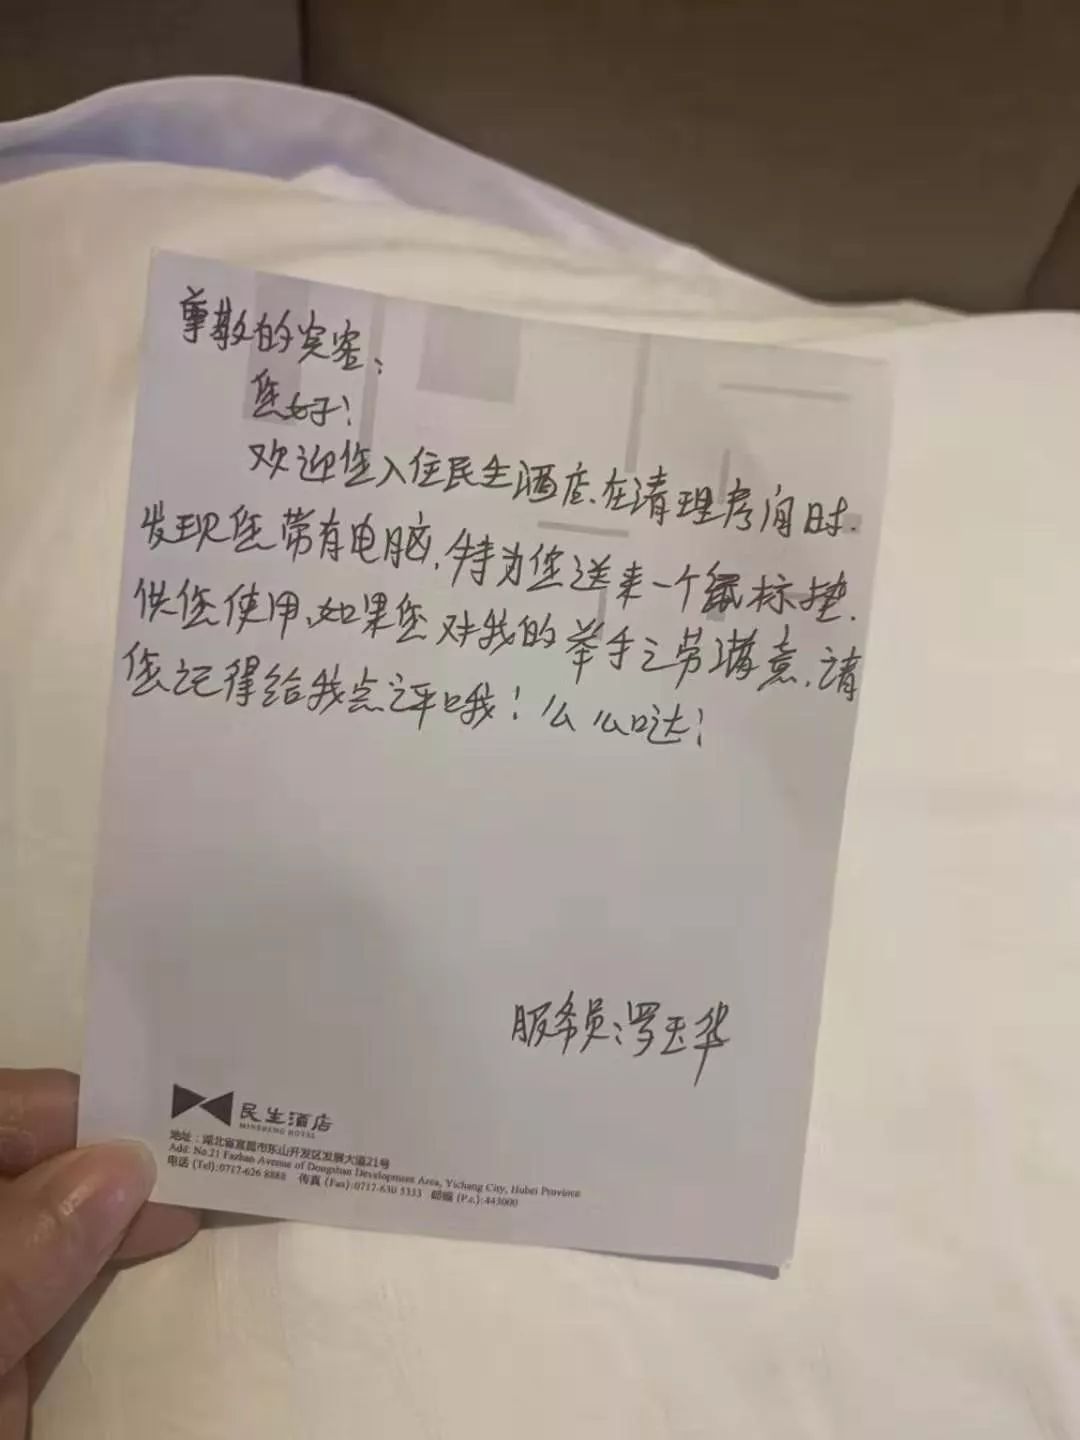 尊敬的宾客：
您好！
欢迎您入住民生酒店、在清理房间时.
发现您带有电脑，特为您送来一个鼠标垫.
供您使用、如果您对我的举手之劳满意、请
您记得给我点评哦！么么哒！
服务员：罗玉华
民生酒店
MINSHENG HOTEL
地址：湖北省宜昌市东山开发区发展大道21号
Add: No.21 Fazhan Avenue of Dongshan Development Area, Yichang City, Hubei Province
电话 (Tel):0717-626 8888 传真 (Fax):0717-630 5333 邮编 (P.c.):443000